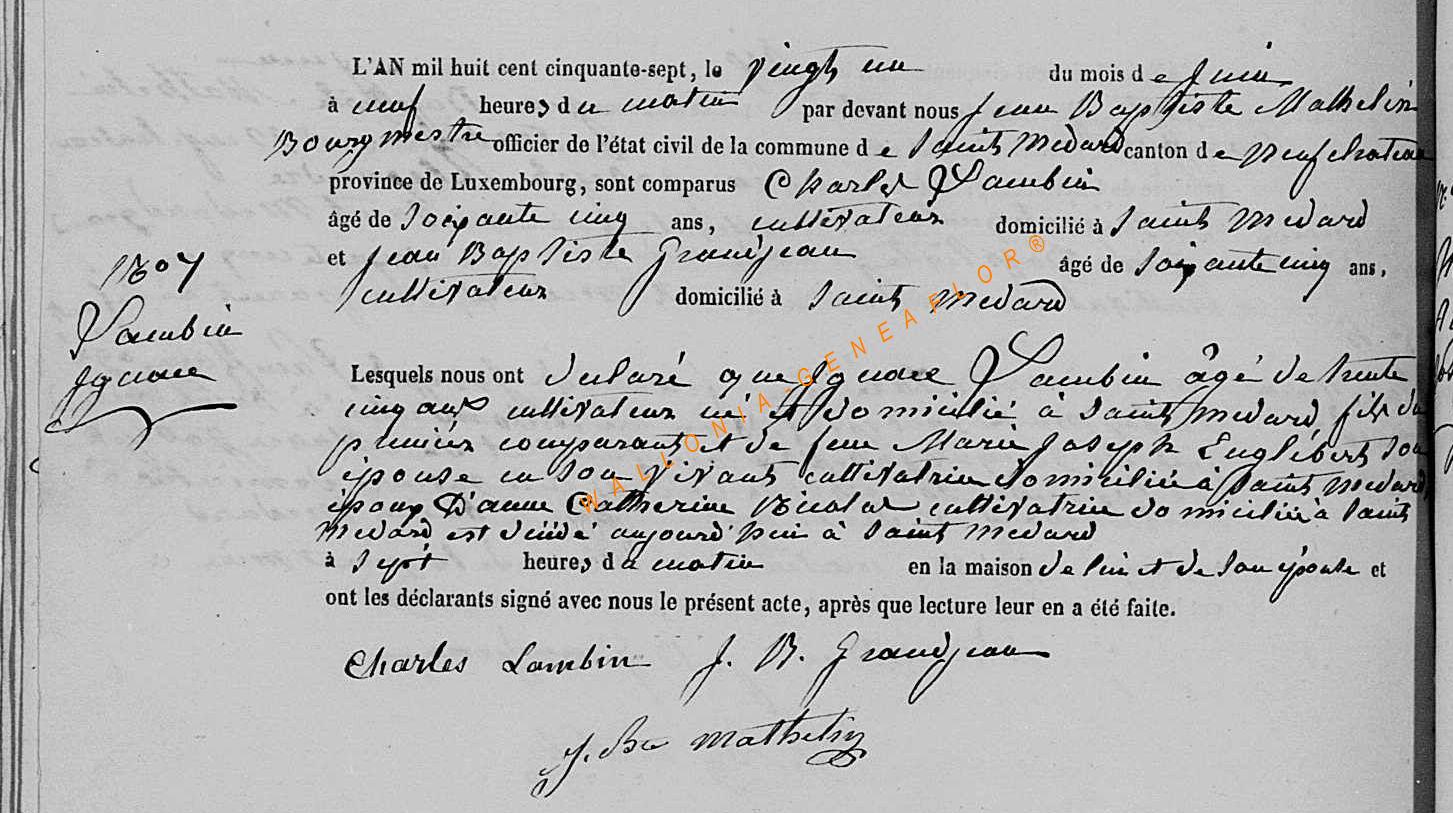 L'AN mil huit cent cinquante-sept, le vingt un du mois de juin
à neuf heures du matin par devant nous Jean Baptiste Mathelin
Bourgmestre officier de l'état civil de la commune de Saint Medard canton de Neufchateau
province de Luxembourg, sont comparus Charles Lambin
âgé de soixante cinq ans, cultivateur domicilié à Saint Medard
et Jean Baptiste Grandjean âgé de soixante cinq ans,
cultivateur domicilié à Saint Medard
Lambin
Ignace
Lesquels nous ont déclaré que Ignace Lambin âgé de trente
cinq ans cultivateur né et domicilié à Saint Medard, fils du
premier comparant et de feue Marie Joseph Englébert son
épouse en son vivant cultivatrice domiciliée à Saint Medard,
époux D'anne Catherine Nicolas cultivatrice domiciliée à Saint
Medard est décédé aujourd'hui à Saint Medard
à sept heures du matin en la maison de lui et de son épouse et
ont les déclarants signé avec nous le présent acte, après que lecture leur en a été faite.
Charles Lambin J. B. Grandjean
J. Bte Mathelin
WALLONIA-GENEAFLOR®